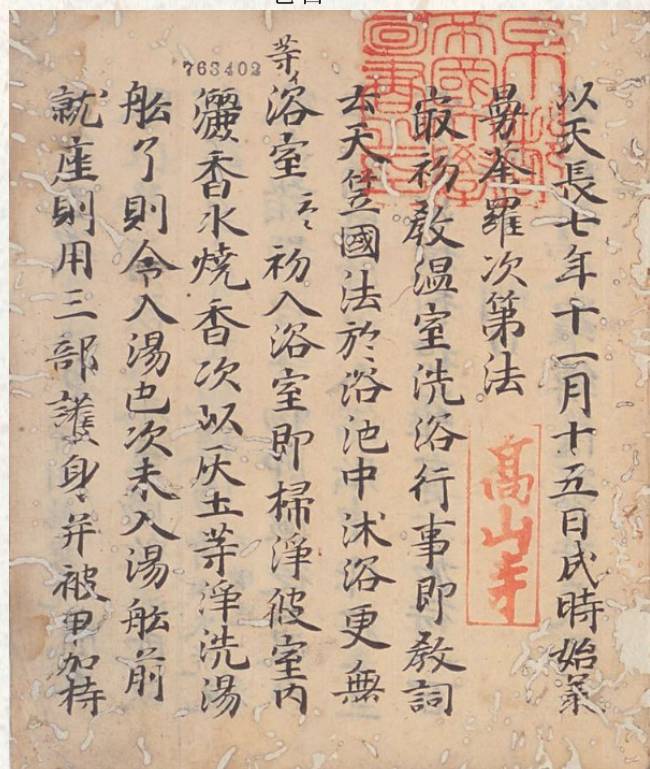 以天長七年十一月十五日戌時始業
曼荼羅次第法
高山寺
㝡初教温室洗浴行事即教詞
云天竺國法於浴池中沐浴更無
等
浴室云々初入浴室即掃淨彼室内
763402
灑香水燒香次以灰土等淨洗湯
舩了則令入湯也次未入湯舩前
就座則用三部護身并被甲加持